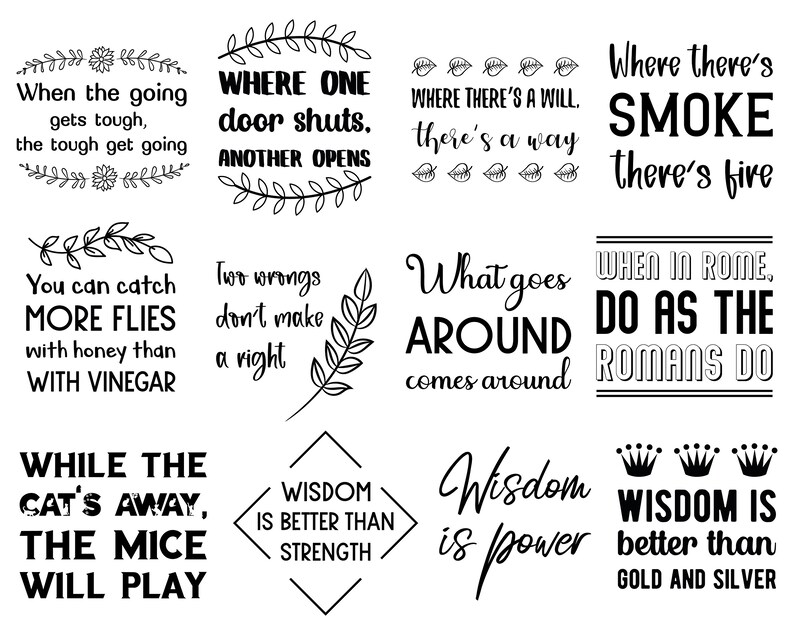 When the going
gets tough,
the tough get going
WHERE ONE
door shuts,
ANOTHER OPENS
WHERE THERE'S A WILL,
there's a way
Where there's
SMOKE
there's fire
You can catch
MORE FLIES
with honey than
WITH VINEGAR
Two wrongs
don't make
a right
What goes
AROUND
comes around
WHEN IN ROME,
DO AS THE
ROMANS DO
WHILE THE
CAT'S AWAY,
THE MICE
WILL PLAY
WISDOM
IS BETTER THAN
STRENGTH
Wisdom
is power
WISDOM IS
better than
GOLD AND SILVER